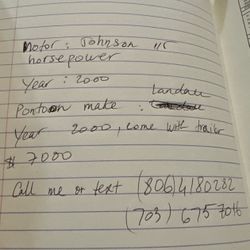 Motor : Johnson 115
horsepower
Year : 2000
Landau
Pontoon make :
Year 2000, come with trailer
$ 7000
Call me or text (806)4180282
(703) 6757016